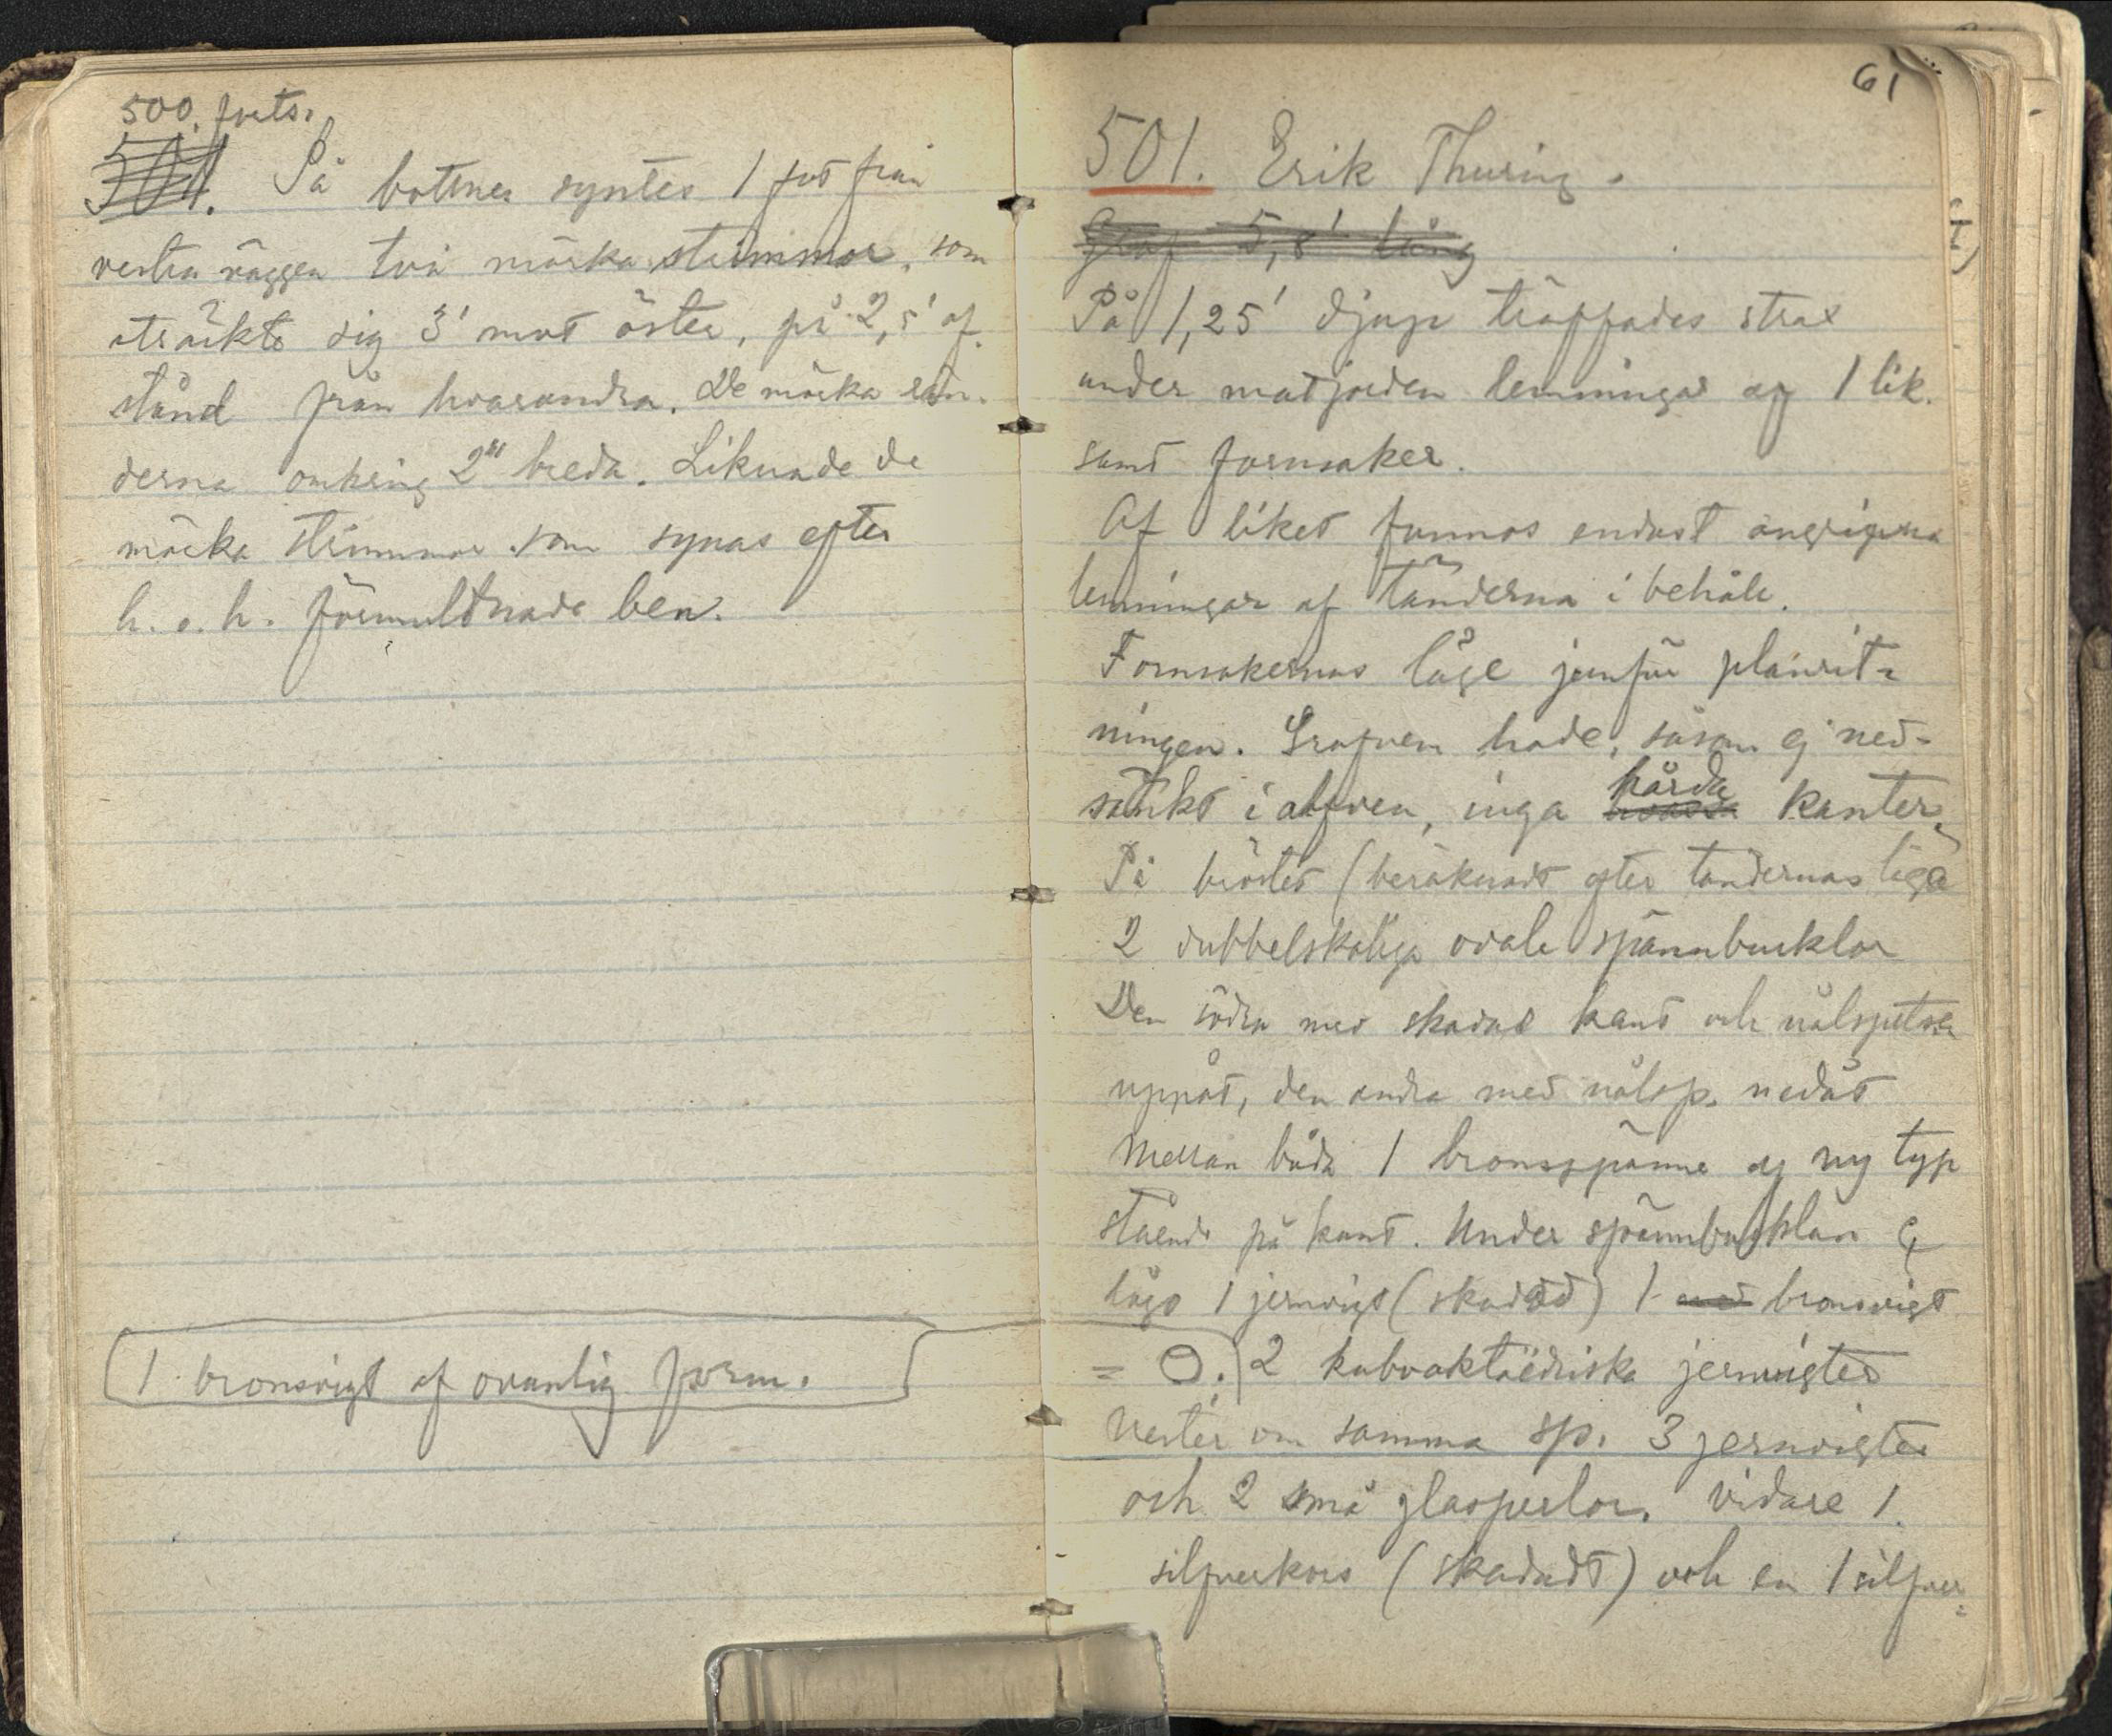 500. forts.
501. På bottnen syntes 1 fot från
vestra väggen två mörka strimmor, som
sträckte sig 3' mot öster, på 2,5' af-
stånd från hvarandra. De mörka rän-
derna omkring 2" breda. Liknade de
mörka strimmor som synas efter
h. o. h. förmultnade ben.
1 bronsvigt af ovanlig form.
61
501. Erik Thuring.
Graf 5,8' lång
På 1,25' djup träffades strax
under matjorden lemningar af 1 lik.
samt fornsaker.
Af liket funnos endast
lemningar af tänderna i behåll.
Fornsakernas läge jemför planrit-
ningen. Grafven hade, såsom ej ned-
sänkt i alfven, inga hårda kanter.
På bröstet (beräknadt efter tändernas läge
2 dubbelskaliga ovala spännbucklor
Den södra med skadad kant och nålspetsen
uppåt, den andra med nålsp. nedåt
Mellan båda 1 bronsspänne af ny typ
stående på kant. Under spännbucklan
lågo 1 jernvigt (skadad) 1 bronsvigt
= 2 kubooktaëdriska jernvigter
Vester om samma sp. 3 jernvigter
och 2 små glasperlor. Vidare 1
silfverkors (skadadt) och en 1 silfver-